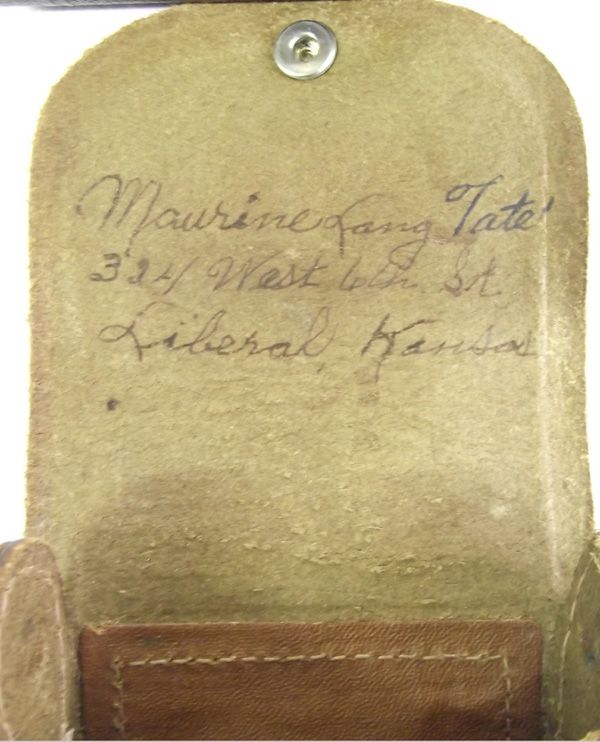 Maurine Lang Tate
324 West 6th St
Liberal, Kansas